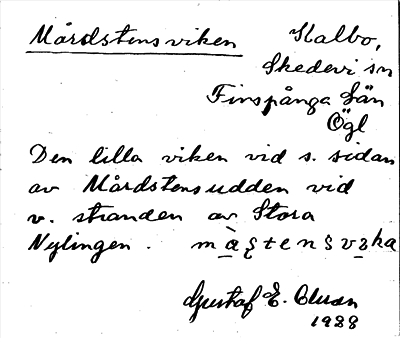 Mårdstensviken
Stalbo,
Skedevi sn
Finspånga län
Ögl
Den lilla viken vid s. sidan
av Mårdstensudden vid
v. stranden av Stora
Nylingen.
Gustaf E.
1928